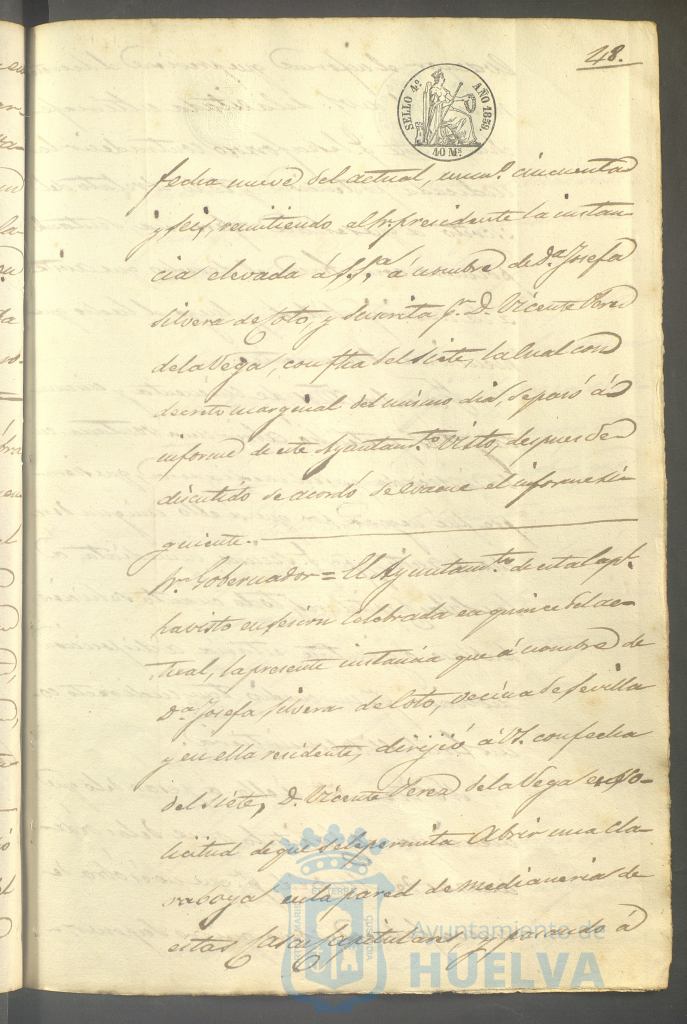 48.
SELLO 4º AÑO 1859.
40 Ms.
fecha nueve del actual, num.º cincuenta
y seis, remitiendo al Sr. presidente la instan
cia elevada á S.S.ª á nombre de D.ª Josefa
Silvera de Soto, y suscrita p.r D. Vicente Perea
de la Vega, con fha del siete, la cual con
decreto marginal del mismo dia, se pasó á
informe de este Ayuntam.to Visto, despues de
discutido se acordó se evacue el informe si
guiente.
Sr. Gobernador = El Ayuntam.to de esta Cap.l
ha visto en sesion celebrada en quince del ac-
tual, la presente instancia que á nombre de
D.ª Josefa Silvera de Soto, vecina de Sevilla
y en ella residente, dirijió á V.S. con fecha
del siete, D. Vicente Perea de la Vega en so-
licitud de que se le permita abrir una cla-
raboya en la pared de medianeria de
estas Casas Capitulares, y pasando á
Ayuntamiento de
HUELVA